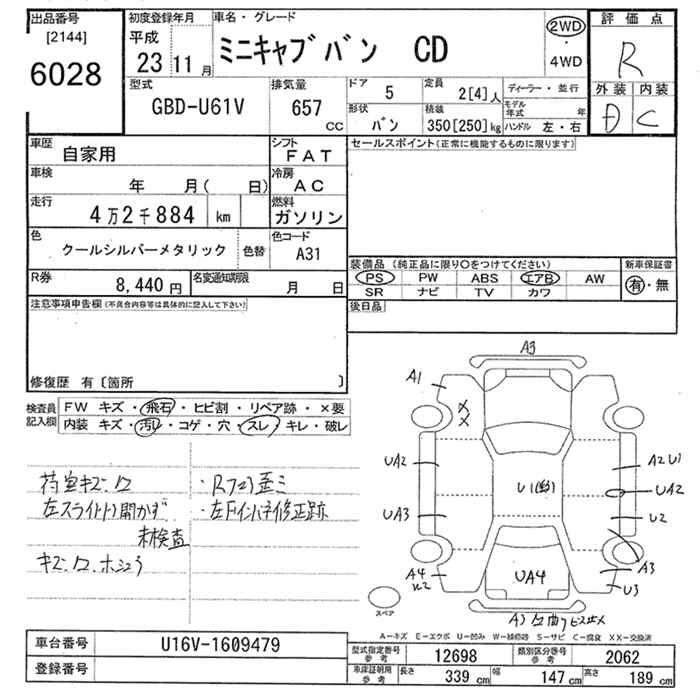 出品番号 初度登録年月 車名・グレード 評価点
[2144] 平成 ミニキャブバン CD 2WD R
6028 23 11月 ・4WD 外装 内装
型式 排気量 ドア 定員 ディーラー・並行 D C
GBD-U61V 657 5 2[4]人 モデル年式 年
CC 形状 バン 積装 350[250]kg ハンドル 左・右
車歴 自家用 シフト FAT セールスポイント(正常に機能するものに限ります)
車検 年 月( 日) 冷房 AC
走行 4万2千884 km 燃料 ガソリン
色 クールシルバーメタリック 色替 色コード A31
装備品(純正品に限り○をつけてください) 新車保証書
R券 8,440円 名変通知期限 月 日 PS PW ABS エアB AW 有・無
SR ナビ TV カワ
注意事項申告欄(不具合内容等は具体的に記入して下さい) 後日品
修復歴 有〔箇所 〕
検査員記入欄 FW キズ・飛石・ヒビ割・リペア跡・×要
内装 キズ・汚レ・コゲ・穴・スレ・キレ・破レ
荷室キズ.凹 ・Rフェンダ歪ミ
左スライドドア開かず ・左Fインパネ修正跡
未検査
キズ.凹.ホシュウ
A3
A1
XX
UA2 A2 U1
U1 UA2
UA3 U2
A4 A3
UA4 U3
スペア
A-キズ E-エクボ U-凹み W-補修跡 S-サビ C-腐食 XX-交換済
車台番号 U16V-1609479 型式指定番号 参考 12698 類別区分番号 参考 2062
登録番号 車庫証明用 参考 長さ 339cm 幅 147cm 高さ 189cm